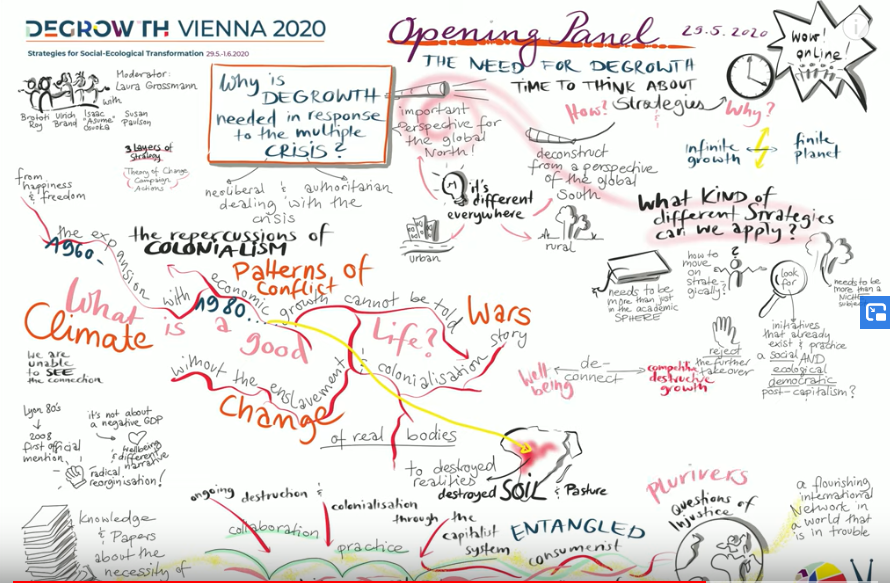 DEGROWTH VIENNA 2020
Strategies for Social-Ecological Transformation 29.5.-1.6.2020
Opening Panel 29.5.2020
THE NEED FOR DEGROWTH
TIME TO THINK ABOUT
How? Strategies Why?
wow!
online!
Moderator:
Laura Grossmann
with
Brototi
Roy
Ulrich
Brand
Isaac
"Asume"
Osuoka
Susan
Paulson
Why is
DEGROWTH
needed in response
to the multiple
CRISIS?
important
perspective for
the global
North!
deconstruct
from a perspective
of the global
South
infinite
growth
finite
planet
3 layers of
strategy
Theory of Change
Campaign
Actions
neoliberal & authoritarian
dealing with the
crisis
it's
different
everywhere
urban
rural
What KIND of
different Strategies
can we apply?
from
happiness
& freedom
1960-
the expansion
with
1980...
economic
growth cannot be told
story
the repercussions of
COLONIALISM
Patterns of
Conflict
Climate
Change
Wars
What
is a
good
Life?
we are
unable
to SEE
the connection
without the enslavement
& colonialisation
of real bodies
to destroyed
realities
destroyed SOIL & Pasture
needs to be
more than just
in the academic
SPHERE
how to
move
on
strate
gically?
look
for
needs to be
more than a
Niche
subject
initiatives
that already
exist & practice
a social AND
ecological
democratic
post-capitalism?
reject
the further
takeover
Well
being
de-
connect
destructive
growth
Lyon 80's
2008
first official
mention
it's not about
a negative GDP
Wellbeing
different
narrative
radical
reorginisation!
Knowledge
& Papers
about the
necessity of
ongoing destruction &
colonialisation
through the
capitalist
system
collaboration
practice
ENTANGLED
consumerist
PLURIVERS
Questions of
Injustice
a flourishing
international
Network in
a world that
is in trouble
V